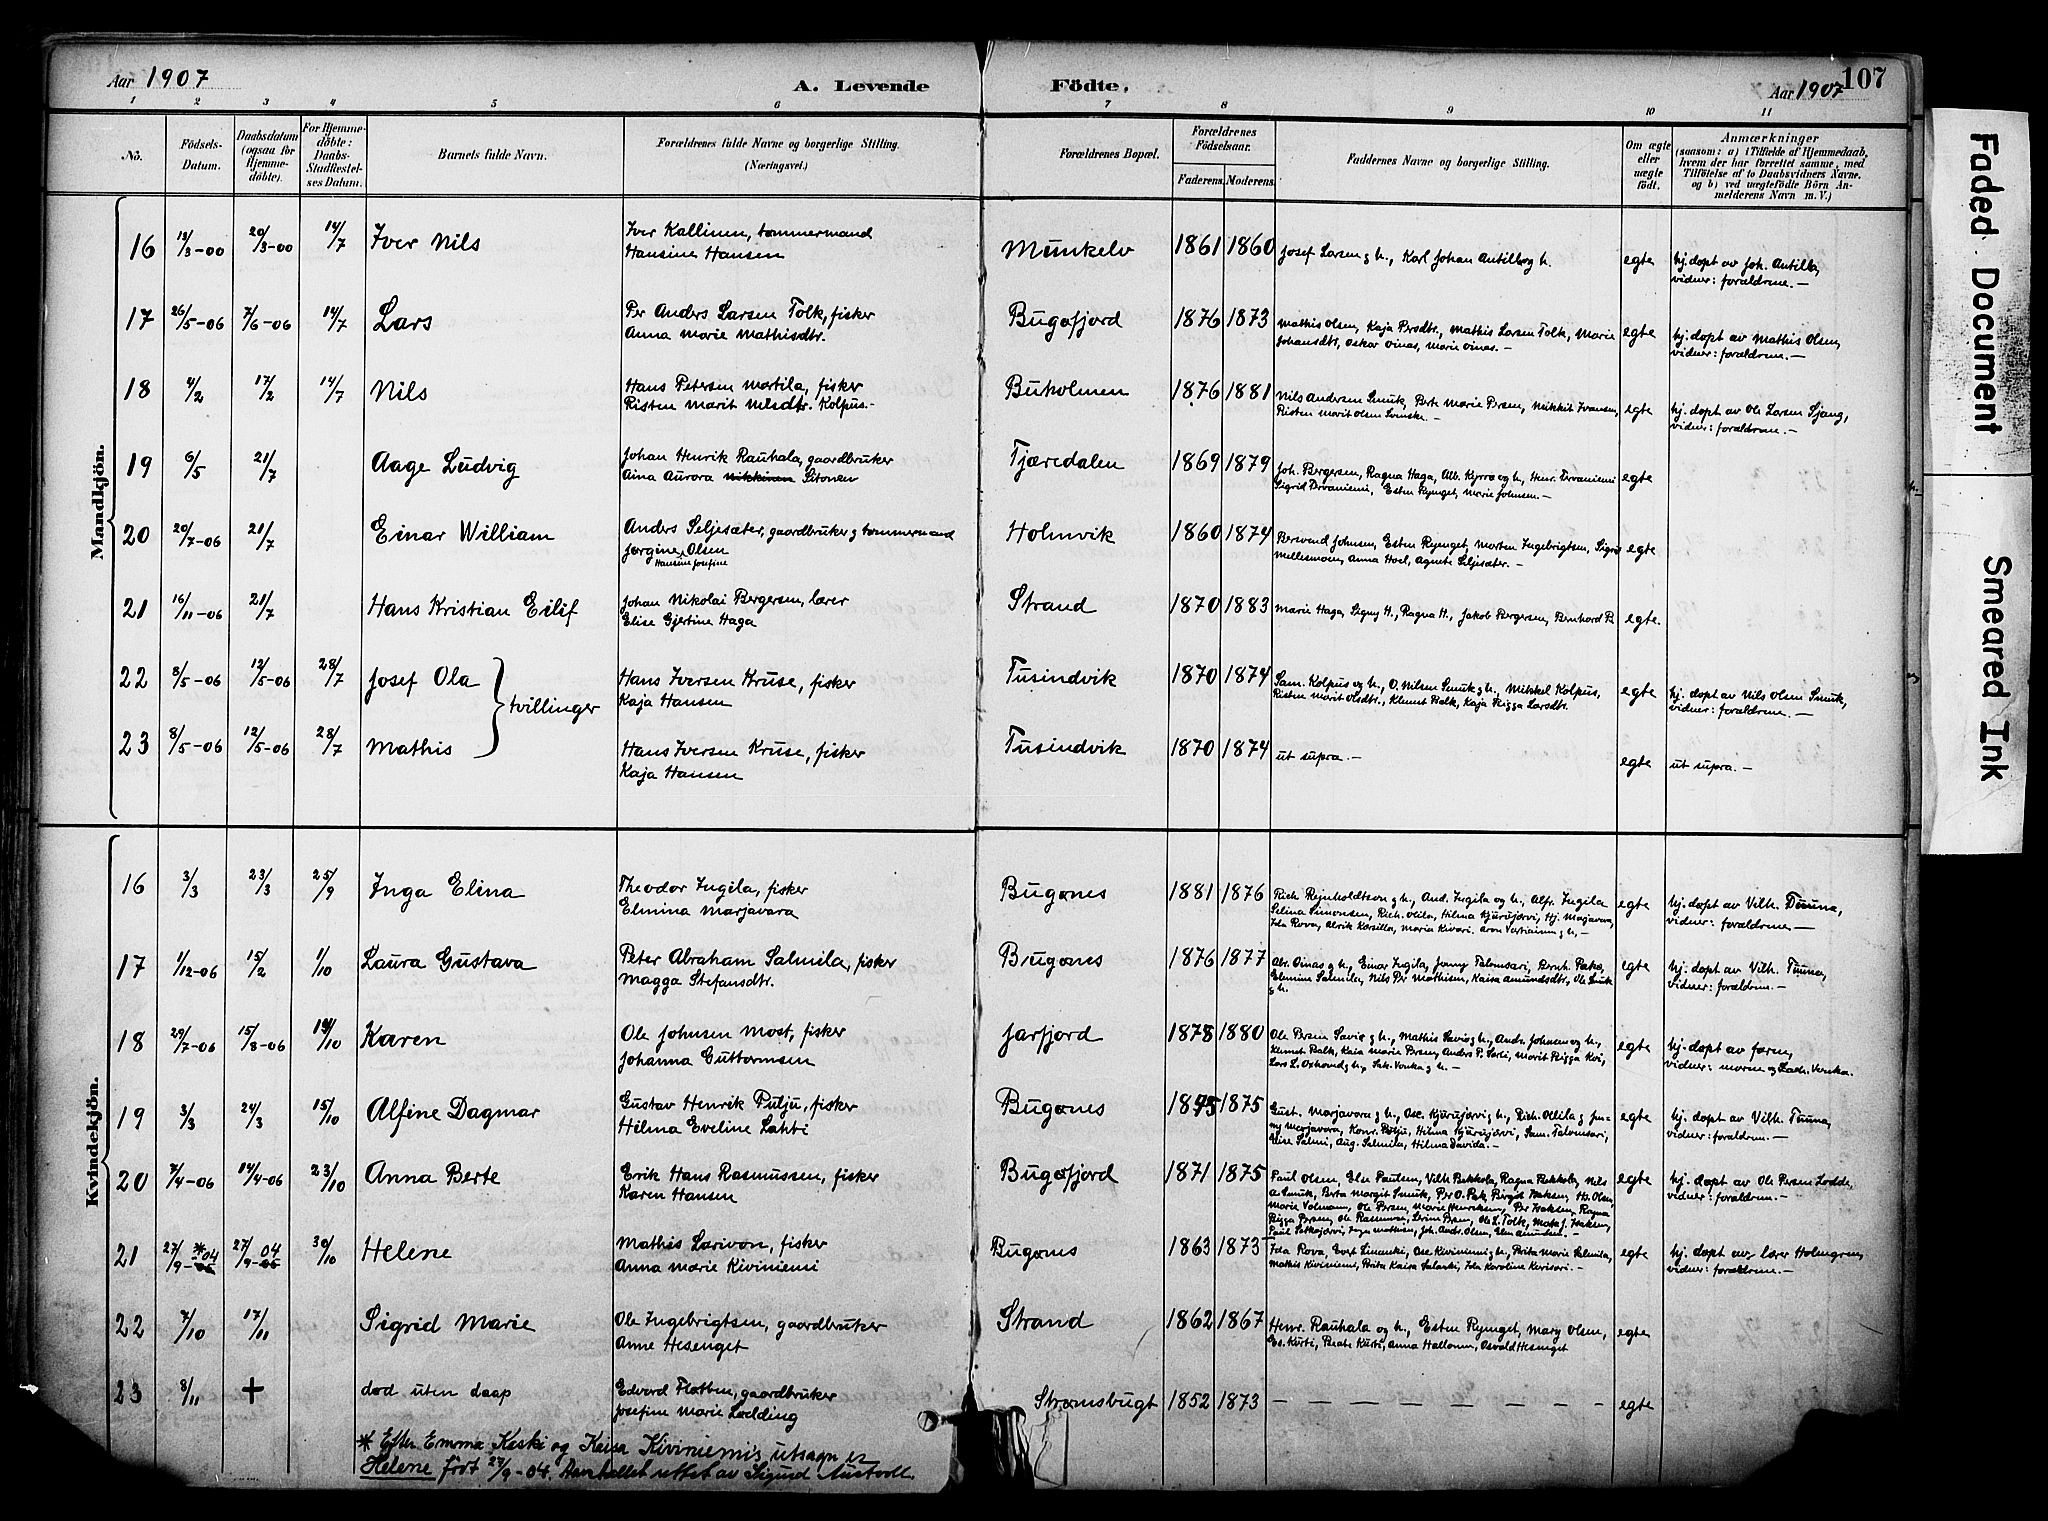 Aar 1907
A. Levende Födte.
Aar 1907
107
1 2 3 4 5 6 7 8 9 10 11
No.
Födsels-
Datum.
Daabsdatum
(ogsaa for
Hjemme-
döbte).
For Hjemme-
döbte:
Daabs-
Stadfæstel-
ses Datum.
Barnets fulde Navn.
Forældrenes fulde Navne og borgerlige Stilling.
(Næringsvei.)
Forældrenes Bopæl.
Forældrenes
Födselsaar.
Faderens. Moderens.
Faddernes Navne og borgerlige Stilling.
Om ægte
eller
uægte
födt.
Anmærkninger
(saasom: a) i Tilfælde af Hjemmedaab,
hvem der har forrettet samme, med
Tilföielse af to Daabsvidners Navne,
og b) ved uægtefödte Börn An-
melderens Navn m. V.)
Mandkjön.
16 13/3-00 20/3-00 14/7 Iver Nils
Iver Kallinen, tømmermand
Hansine Hansen
Munkelv 1861 1860
Josef Larsen & h., Karl Johan Antilla og h.
egte
hj. døpt av Joh. Antilla,
vidner: forældrene.-
17 26/5-06 7/6-06 14/7 Lars
Per Anders Larsen Tolk, fisker
Anna Marie Mathisdtr.
Bugøfjord 1876 1873
Mathis Olsen, Kaja Persdtr., Mathis Larsen Tolk, Marie
Johansdtr, Oskar Oinas, Marie Oinas.-
egte
hj. døpt av Mathis Olsen,
vidner: forældrene.-
18 4/2 17/2 14/7 Nils
Hans Petersen Martila, fisker
Risten Marit Nilsdtr. Kolpus.-
Buholmen 1876 1881
Nils Andersen Smuk, Berte Marie Persen, Mikkel Ivarsen,
Risten Marit Olsen Svinske.-
egte
hj. døpt av Ole Larsen Sjang,
vidner: forældrene.-
19 6/5 21/7 Aage Ludvig
Johan Henrik Rauhala, gaardbruker
Aina Aurora Nikkinen Sitonen
Tjæredalen 1869 1879
Joh. Bergersen, Ragna Haga, Alb. Kyrrø og h., Henr. Ervaniemi
Sigrid Ervaniemi, Esten Rynget, Marie Johnsen.-
egte
20 20/7-06 21/7 Einar William
Anders Seljesæter, gaardbruker & tømmermand
Jørgine Olsen
Hansine Josefine
Holmvik 1860 1874
Bersvend Johnsen, Esten Rynget, Morten Ingebrigtsen, Sigrid
Mellesmoen, Anna Hoel, Agnete Seljesæter.-
egte
21 16/11-06 21/7 Hans Kristian Eilif
Johan Nikolai Bergersen, lærer
Elise Gjertine Haga
Strand 1870 1883
Marie Haga, Signy H., Ragna H., Jakob Bergersen, Bernhard B.
egte.
22 8/5-06 12/5-06 28/7 Josef Ola
tvillinger
Hans Iversen Kruse, fisker
Kaja Hansen
Tusindvik 1870 1874
Sam. Kolpus og h., O. Nilsen Smuk & h., Mikkel Kolpus,
Risten Marit Olsdtr., Klemet Balk, Kaja Rigga Larsdtr.
egte
hj. døpt av Nils Olsen Smuk,
vidner: forældrene.-
23 8/5-06 12/5-06 28/7 Mathis
Hans Iversen Kruse, fisker
Kaja Hansen
Tusindvik 1870 1874
ut supra.-
egte
ut supra.-
Kvindekjön.
16 3/3 23/3 25/9 Inga Elina
Theodor Ingila, fisker
Elmina Marjavara
Bugønes 1881 1876
Rich. Reinholdtson & h., And. Ingila og h., Alfr. Ingila
Selina Simonsen, Rich. Olila, Hilma Kjurujærvi, Hj. Majavara,
Ida Rova, Alrik Karsilla, Maria Kivari.
egte
hj. døpt av Vilh. Tuuna,
vidner: forældrene -
17 1/12-06 15/2 1/10 Laura Gustava
Peter Abraham Salmila, fisker
Magga Stefansdtr.
Bugønes 1876 1877
Abr. Oinas & h., Einar Ingila, Jenny Talomsari, Bernh. Paka,
Elmine Salmila, Nils Per Mathisen, Kaisa Amundsdtr, Ole Smuk
& h.
egte
hj. døpt av Vilh. Tuuna,
vidner: forældrene.-
18 29/7-06 15/8-06 14/10 Karen
Ole Johnsen Most, fisker
Johanna Guttormsen
Jarfjord 1878 1880
Ole Persen Savio & h., Mathis Savio & h., Andr. Johnsen og h.,
Klemet Balk, Kaia Marie Persen, Anders P. Sarli, Marit Rigga Kvi,
Lars L. Oxhoved & h.
egte
hj. døpt av faren,
vidner: moren og Zach. Venka.
19 3/3 24/3 15/10 Alfine Dagmar
Gustav Henrik Pulju, fisker
Hilma Eveline Lahti
Bugønes 1875 1875
Gust. Marjavara & h., Osc. Kjurujærvi & h., Rich. Ollila & Jen-
ny Marjavara, Konr. Pulju, Hilma Kjurujærvi, Sam. Talomsari,
Elise Salmi, Aug. Salmila, Hilma Davida.-
egte
hj. døpt av Vilh. Tuuna,
vidner: forældrene.-
20 7/4-06 14/4-06 23/10 Anna Berte
Erik Hans Rasmussen, fisker
Karen Hansen
Bugøfjord 1871 1875
Paul Olsen, Elen Paulsen, Vilh. Bekkola, Ragna Bekkola, Nils
A. Smuk, Berta Margit Smuk, Per O. Pak, Birgit Isaksen, Hs. Olsen
Marie Volmann, Ole Persen, Marie Henriksen, Per Isaksen, Ragna
Rigga Persen, Ole Rasmussen,
egte
hj. døpt av Ole Persen Lodde,
vidner: forældrene.-
21 27/9-*04 27/9-04 30/10 Helene
Mathis Sarivon, fisker
Anna Marie Kiviniemi
Bugønes 1863 1873
Ida Rova, Osc Kiviniemi & h., Brita Marie Salmila,
Mathis Kiviniemi, Brita Kaisa Salanki, Ida Karoline Kerisari.-
egte
hj. døpt av lærer Holmgren,
vidner: forældrene.-
22 7/10 17/11 Sigrid Marie
Ole Ingebrigtsen, gaardbruker
Anne Hesenget
Strand 1862 1867
Henr. Rauhala og h., Esten Rynget, Mary Olsen,
Es. Kurti, Beate Kurti, Anna Hallonen, Osvald Hesenget
egte
23 8/11 + død uten daap
Edvard Flotten, gaardbruker
Josefine Marie Lødding
Strømsbugt 1852 1873 - - - - - - - - - egte
* Efter Emma Keski og Kaisa Kiviniemis utsagn er
Helene født 27/9-04. Aarstallet rettet av Sigurd Austvoll.
Faded Document
Smeared Ink